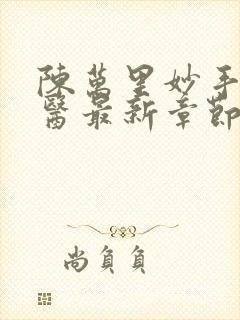 陳萬里妙手
醫最新章節
尚負負